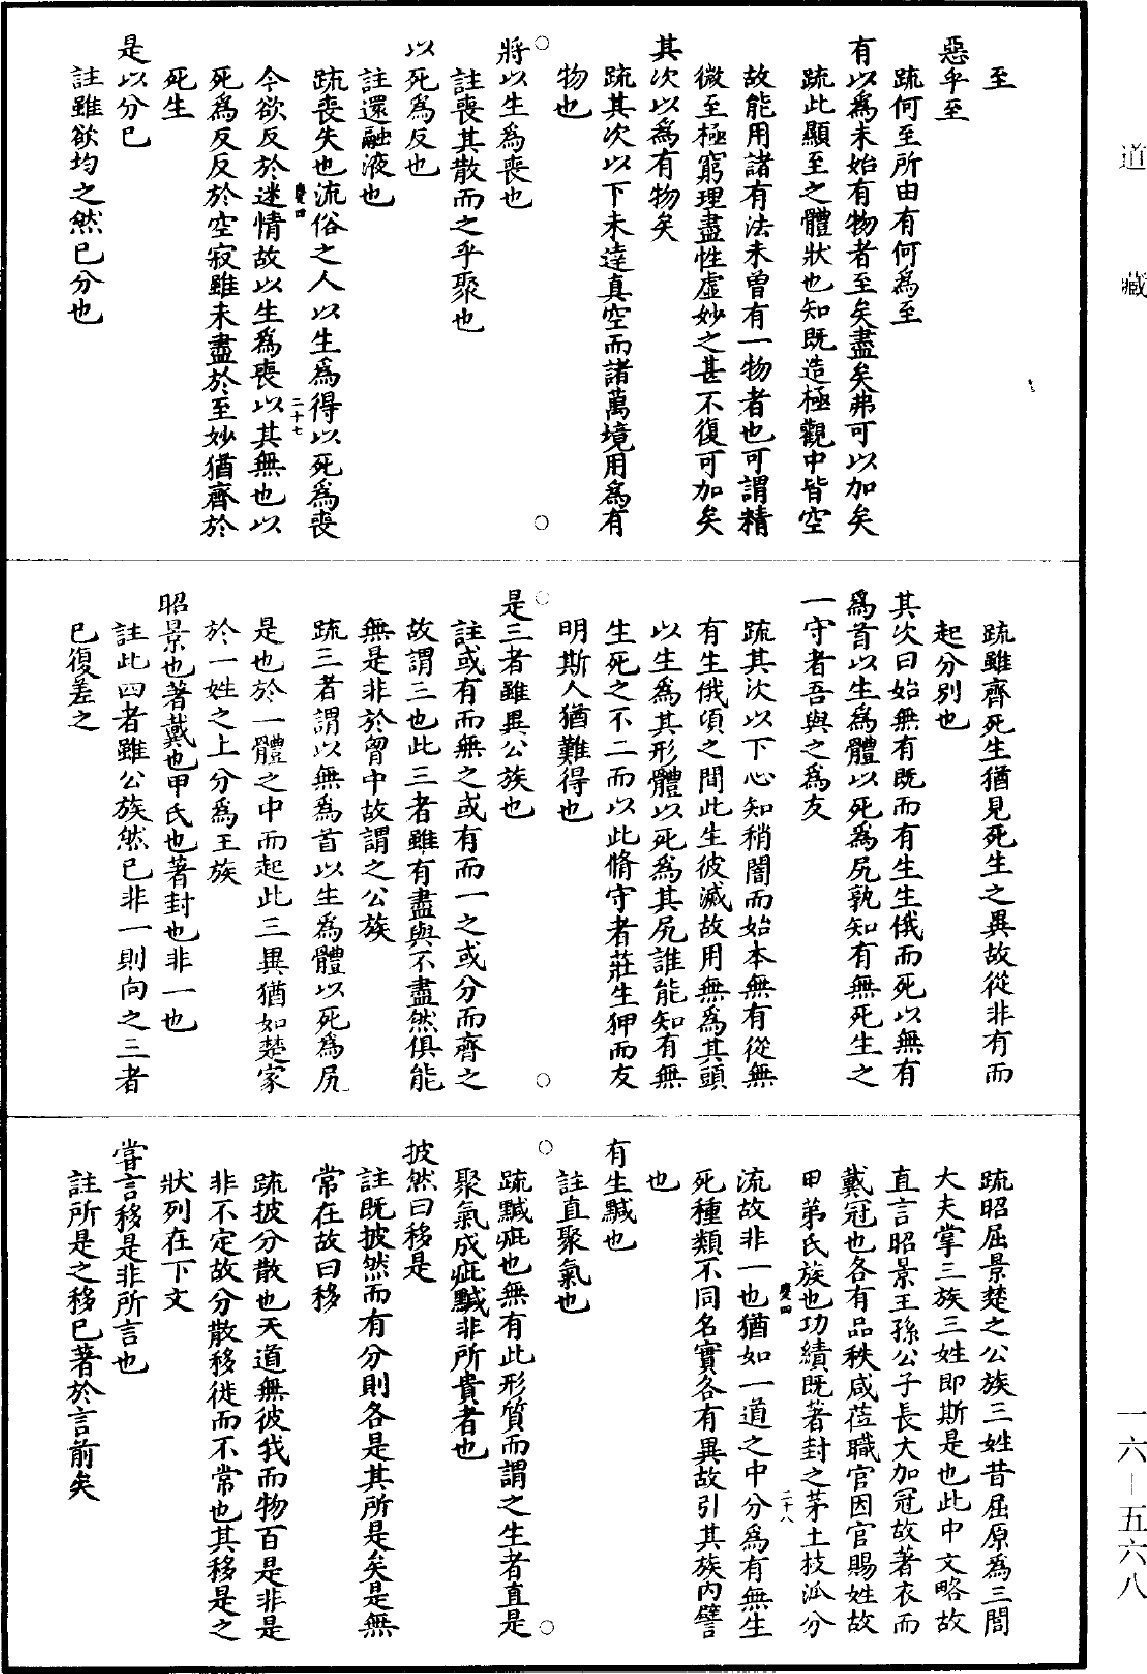 道藏
至
惡乎至
疏何至所由有何為至
有以為未始有物者至矣盡矣弗可以加矣
疏此顯至之體狀也知既造極觀中皆空
故能用諸有法未曾有一物者也可謂精
微至極窮理盡性虛妙之甚不復可加矣
其次以為有物矣
疏其次以下未達真空而諸萬境用為有
物也
將以生為喪也
註喪其散而之乎聚也
以死為反也
註還融液也
疏喪失也流俗之人以生為得以死為喪
慶四
二十七
今欲反於迷情故以生為喪以其無也以
死為反反於空寂雖未盡於至妙猶齊於
死生
是以分已
註雖欲均之然已分也
疏雖齊死生猶見死生之異故從非有而
起分別也
其次曰始無有既而有生生俄而死以無有
為首以生為體以死為尻孰知有無死生之
一守者吾與之為友
疏其次以下心知稍闇而始本無有從無
有生俄頃之間此生彼滅故用無為其頭
以生為其形體以死為其尻誰能知有無
生死之不二而以此脩守者莊生狎而友
明斯人猶難得也
是三者雖異公族也
註或有而無之或有而一之或分而齊之
故謂三也此三者雖有盡與不盡然俱能
無是非於胷中故謂之公族
疏三者謂以無為首以生為體以死為尻
是也於一體之中而起此三異猶如楚家
於一姓之上分為王族
昭景也著戴也甲氏也著封也非一也
註此四者雖公族然已非一則向之三者
已復差之
疏昭屈景楚之公族三姓昔屈原為三閭
大夫掌三族三姓即斯是也此中文略故
直言昭景王孫公子長大加冠故著衣而
戴冠也各有品秩咸莅職官因官賜姓故
甲第氏族也功績既著封之茅土技泒分
慶四
二十八
流故非一也猶如一道之中分為有無生
死種類不同名實各有異故引其族內譬
也
有生黬也
註直聚氣也
疏黬疵也無有此形質而謂之生者直是
聚氣成疵黬非所貴者也
披然曰移是
註既披然而有分則各是其所是矣是無
常在故曰移
疏披分散也天道無彼我而物百是非是
非不定故分散移徙而不常也其移是之
狀列在下文
嘗言移是非所言也
註所是之移已著於言前矣
一六—五六八